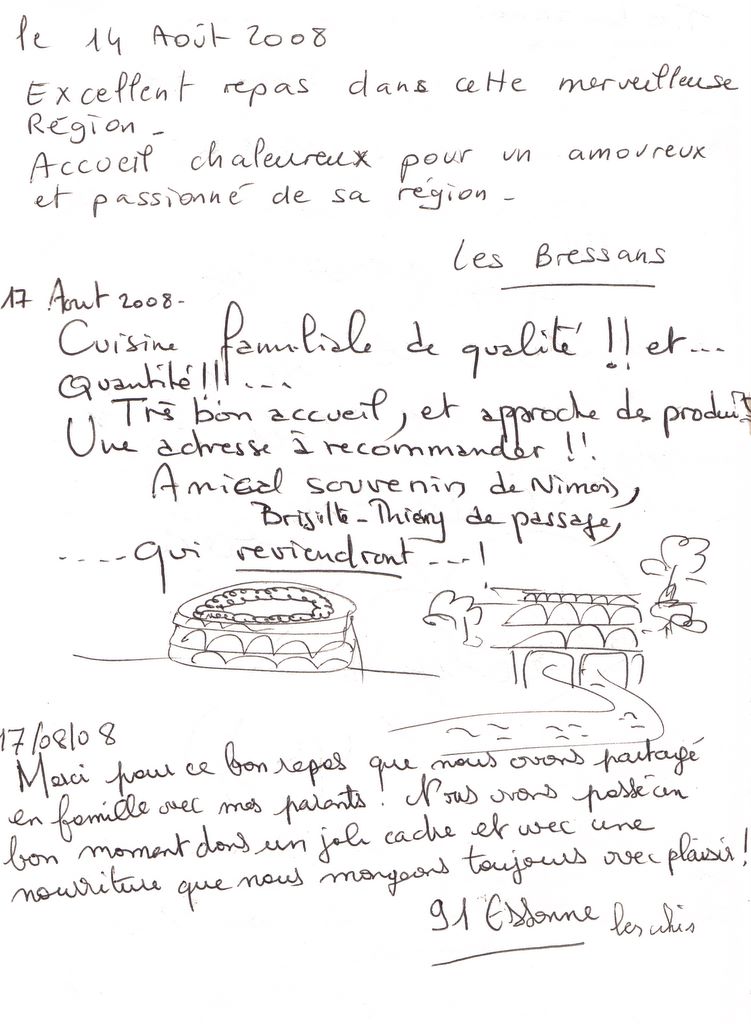 le 14 Août 2008
Excellent repas dans cette merveilleuse
Région -
Accueil chaleureux pour un amoureux
et passionné de sa région -
Les Bressans
17 Aout 2008-
Cuisine familiale de qualité !! et...
Quantité !!! ....
Très bon accueil, et approche des produits
Une adresse à recommander !!
Amical souvenir de Nimois,
Brigitte - Thierry de passage,
..... qui reviendront ....!
17/08/08
Merci pour ce bon repas que nous avons partagé
en famille avec mes parents ! Nous avons passé un
bon moment dans un joli cadre et avec une
nourriture que nous mangeons toujours avec plaisir !
91 Essonne les